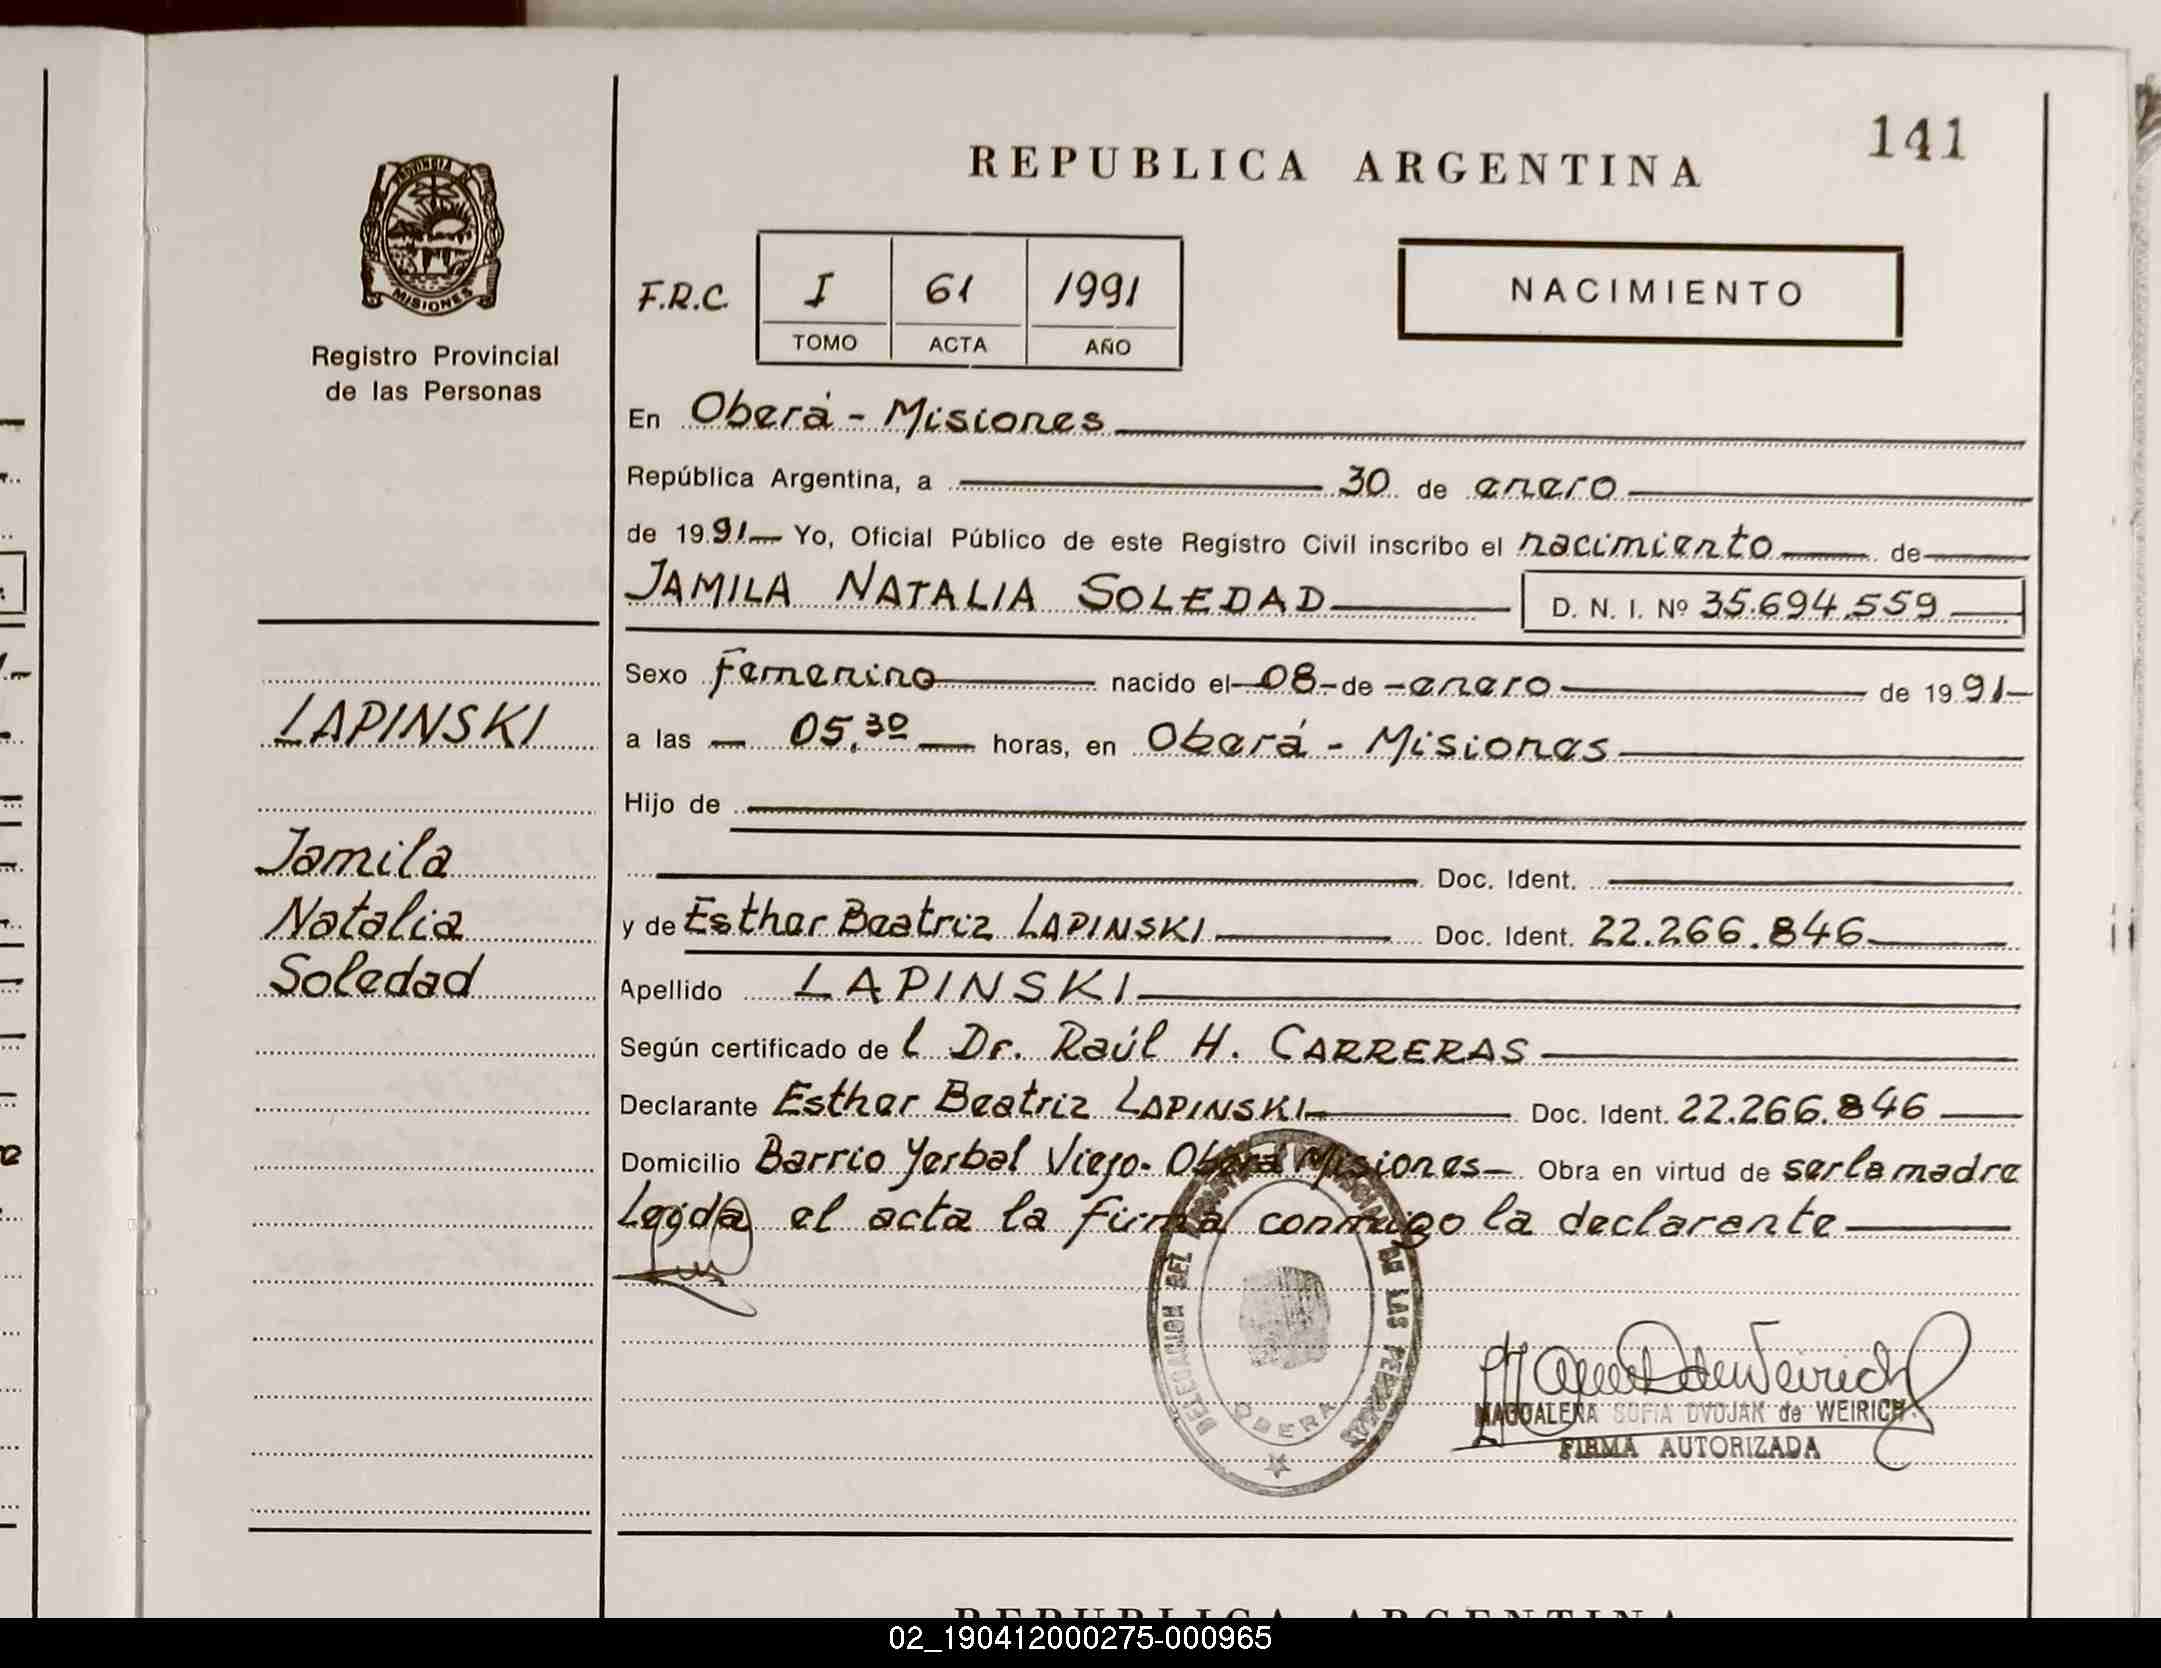 141
REPUBLICA ARGENTINA
PROVINCIA DE
MISIONES
Registro Provincial
de las Personas
F.R.C. I 61 1991
TOMO ACTA AÑO
NACIMIENTO
En Oberá - Misiones
República Argentina, a 30 de enero
de 1991 Yo, Oficial Público de este Registro Civil inscribo el nacimiento de
JAMILA NATALIA SOLEDAD D. N. I. Nº 35.694.559
Sexo Femenino nacido el 08 de enero de 1991
LAPINSKI
a las 05,30 horas, en Oberá - Misiones
Hijo de
Jamila
Doc. Ident.
Natalia
y de Esther Beatriz LAPINSKI Doc. Ident. 22.266.846
Soledad
Apellido LAPINSKI
Según certificado de l Dr. Raúl H. CARRERAS
Declarante Esther Beatriz LAPINSKI Doc. Ident. 22.266.846
Domicilio Barrio Yerbal Viejo. Oberá Misiones Obra en virtud de ser la madre
Leída el acta la firma conmigo la declarante
DELEGACION DEL REGISTRO DE LAS PERSONAS
OBERA
MAGDALENA SOFIA DVOJAK de WEIRICH
FIRMA AUTORIZADA
REPUBLICA ARGENTINA
02_190412000275-000965